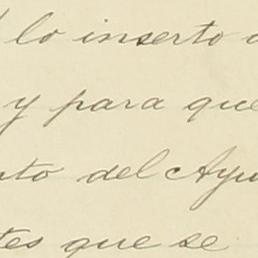 lo inserto
y para que
to del Ayu
tes que se